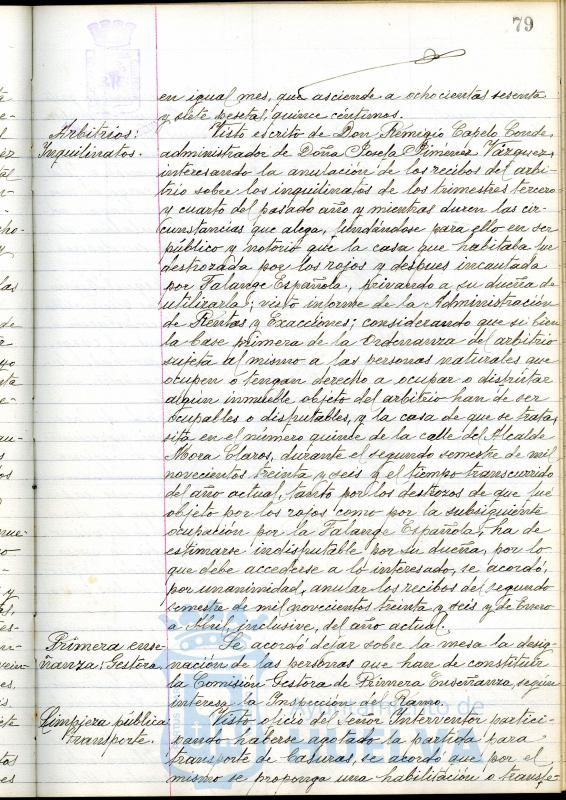 79
en igual mes, que asciende a ochocientas sesenta
y siete pesetas, quince céntimos.
Arbitrios:
Inquilinatos.
Visto escrito de Don Remigio Capelo Conde,
administrador de Doña Josefa Jiménez Vázquez,
interesando la anulación de los recibos del arbi-
trio sobre los inquilinatos de los trimestres tercero
y cuarto del pasado año y mientras duren las cir-
cunstancias que alega, fundándose para ello en ser
público y notorio que la casa que habitaba fue
destrozada por los rojos y despues incautada
por Falange Española, privando a su dueña de
utilizarla; visto informe de la Administración
de Rentas y Exacciones; considerando que si bien
la base primera de la Ordenanza del arbitrio
sujeta al mismo a las personas naturales que
ocupen o tengan derecho a ocupar o disfrutar
algún inmueble objeto del arbitrio han de ser
ocupables o disfrutables, y la casa de que se trata,
sita en el número quince de la calle del Alcalde
Mora Claros, durante el segundo semestre de mil
novecientos treinta y seis y el tiempo transcurrido
del año actual, tanto por los destrozos de que fué
objeto por los rojos como por la subsiguiente
ocupación por la Falange Española, ha de
estimarse indisfrutable por su dueña, por lo
que debe accederse a lo interesado, se acordó,
por unanimidad, anular los recibos del segundo
semestre de mil novecientos treinta y seis y de Enero
a Abril, inclusive, del año actual.
Primera ense-
ñanza: Gestora.
Se acordó dejar sobre la mesa la desig-
nación de las personas que han de constituir
la Comisión Gestora de Primera Enseñanza, según
interesa la Inspección del Ramo.
Limpieza pública:
Transporte.
Visto oficio del Señor Interventor partici-
pando haberse agotado la partida para
transporte de basuras, se acordó que por el
mismo se proponga una habilitación o transfe-